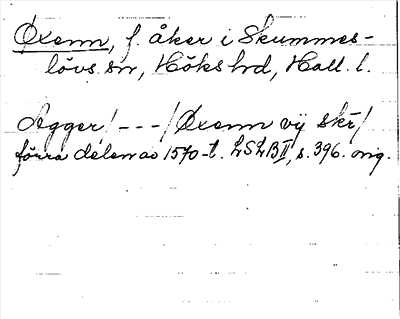 Öxenn, f. åker i Skummes-
lövs sn, Höks hd, Hall. l.
Agger/ - - - / Øxenn vij skr̄/
förra delen av 1570-t. LSLB II, s. 396. orig.